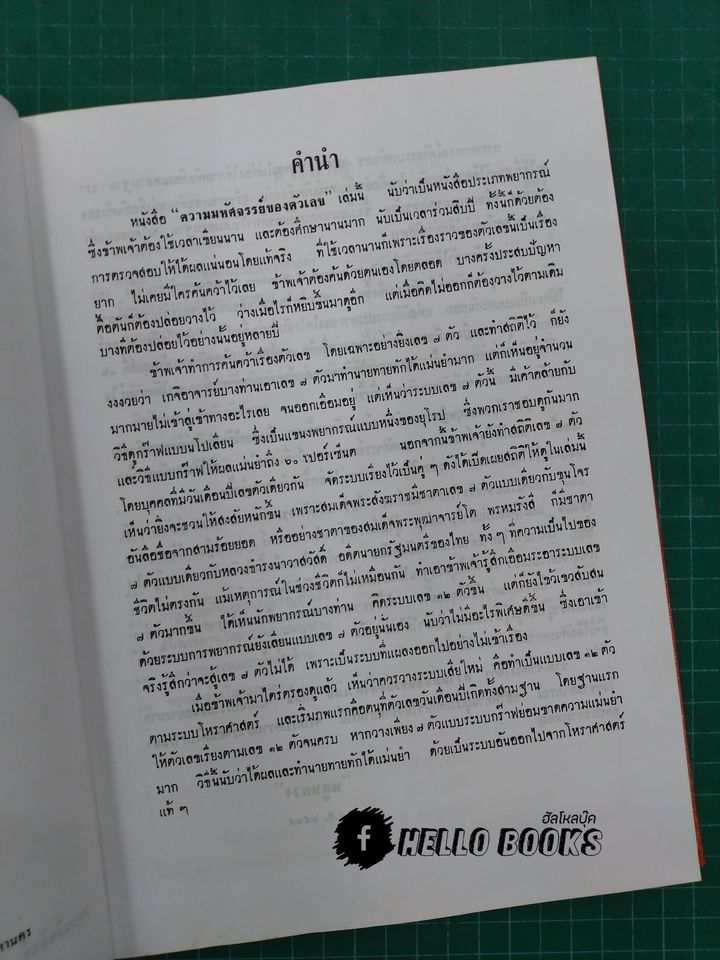 คำนำ
หนังสือ “ความมหัศจรรย์ของตัวเลข” เล่มนี้ นับว่าเป็นหนังสือประเภทพยากรณ์
ซึ่งข้าพเจ้าต้องใช้เวลาเขียนนาน และต้องศึกษานานมาก นับเป็นเวลาร่วมสิบปี ทั้งนี้ก็ด้วยต้อง
การตรวจสอบให้ได้ผลแน่นอนโดยแท้จริง ที่ใช้เวลานานก็เพราะเรื่องราวของตัวเลขนี้เป็นเรื่อง
ยาก ไม่เคยมีใครค้นคว้าไว้เลย ข้าพเจ้าต้องค้นด้วยตนเองโดยตลอด บางครั้งประสบปัญหา
ตื้อตันก็ต้องปล่อยวางไว้ ว่างเมื่อไรก็หยิบขึ้นมาดูอีก แต่เมื่อคิดไม่ออกก็ต้องวางไว้ตามเดิม
บางทีต้องปล่อยไว้อย่างนั้นอยู่หลายปี
ข้าพเจ้าทำการค้นคว้าเรื่องตัวเลข โดยเฉพาะอย่างยิ่งเลข ๗ ตัว และทำสถิติไว้ ก็ยัง
งงงวยว่า เกจิอาจารย์บางท่านเอาเลข ๗ ตัวมาทำนายทายทักได้แม่นยำมาก แต่ก็เห็นอยู่จำนวน
มากมายไม่เข้าสู่เข้าทางอะไรเลย จนออกเอือมอยู่ แต่เห็นว่าระบบเลข ๗ ตัวนี้ มีเค้าคล้ายกับ
วิธีดูกร๊าฟแบบนโปเลียน ซึ่งเป็นแขนงพยากรณ์แบบหนึ่งของยุโรป ซึ่งพวกเราชอบดูกันมาก
และวิธีแบบกร๊าฟให้ผลแม่นยำถึง ๖๐ เปอร์เซ็นต์ นอกจากนี้ข้าพเจ้ายังทำสถิติเลข ๗ ตัว
โดยบุคคลที่มีวันเดือนปีเลขตัวเดียวกัน จัดระบบเรียงไว้เป็นคู่ ๆ ดังได้เปิดเผยสถิติให้ดูในเล่มนี้
เห็นว่ายิ่งจะชวนให้สงสัยหนักขึ้น เพราะสมเด็จพระสังฆราชมีชาตาเลข ๗ ตัวแบบเดียวกับขุนโจร
อันลือชื่อจากสามร้อยยอด หรืออย่างชาตาของสมเด็จพระพุฒาจารย์โต พรหมรังสี ก็มีชาตา
๗ ตัวแบบเดียวกับหลวงธำรงนาวาสวัสดิ์ อดีตนายกรัฐมนตรีของไทย ทั้ง ๆ ที่ความเป็นไปของ
ชีวิตไม่ตรงกัน แม้เหตุการณ์ในช่วงชีวิตก็ไม่เหมือนกัน ทำเอาข้าพเจ้ารู้สึกเอือมระอาระบบเลข
๗ ตัวมากขึ้น ได้เห็นนักพยากรณ์บางท่าน คิดระบบเลข ๑๒ ตัวขึ้น แต่ก็ยังไขว้เขวสับสน
ด้วยระบบการพยากรณ์ยังเลียนแบบเลข ๗ ตัวอยู่นั่นเอง นับว่าไม่มีอะไรพิเศษดีขึ้น ซึ่งเอาเข้า
จริงรู้สึกว่าจะสู้เลข ๗ ตัวไม่ได้ เพราะเป็นระบบที่แผลงออกไปอย่างไม่เข้าเรื่อง
เมื่อข้าพเจ้ามาไตร่ตรองดูแล้ว เห็นว่าควรวางระบบเสียใหม่ คือทำเป็นแบบเลข ๑๒ ตัว
ตามระบบโหราศาสตร์ และเริ่มภพแรกคือตนุที่ตัวเลขวันเดือนปีเกิดทั้งสามฐาน โดยฐานแรก
ให้ตัวเลขเรียงตามเลข ๑๒ ตัวจนครบ หากวางเพียง ๗ ตัวแบบระบบกร๊าฟย่อมขาดความแม่นยำ
มาก วิธีนี้นับว่าได้ผลและทำนายทายทักได้แม่นยำ ด้วยเป็นระบบอันออกไปจากโหราศาสตร์
แท้ ๆ
ฮัลโหลบุ๊ค
f HELLO BOOKS